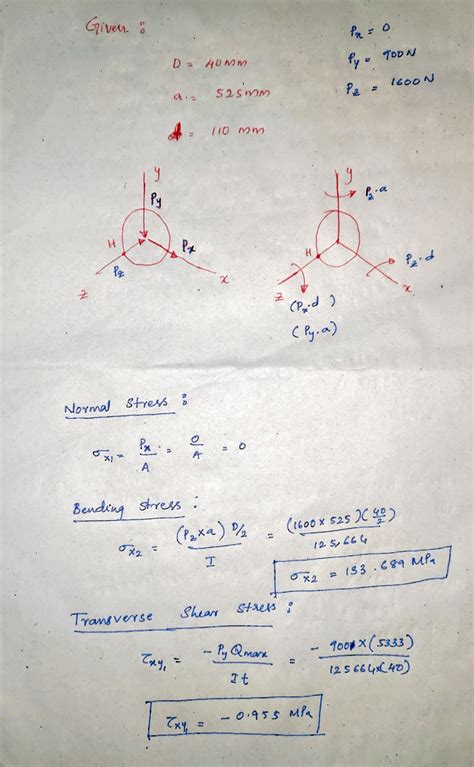 Given :
Px = 0
Py = 900N
Pz = 1600N
D = 40mm
a = 525mm
d = 110 mm
y
Py
H
Px
Pz
z
x
y
Pz.a
H
Pz.d
z
x
(Px.d)
(Py.a)
Normal Stress :
σx1 = Px/A = 0/A = 0
Bending Stress :
σx2 = (Pz×a) D/2 / I = (1600 × 525)(40/2) / 125,664
σx2 = 133.689 MPa
Transverse Shear Stress :
τxy1 = -Py Qmax / It = -900×(5333) / 125664×(40)
τxy1 = -0.955 MPa